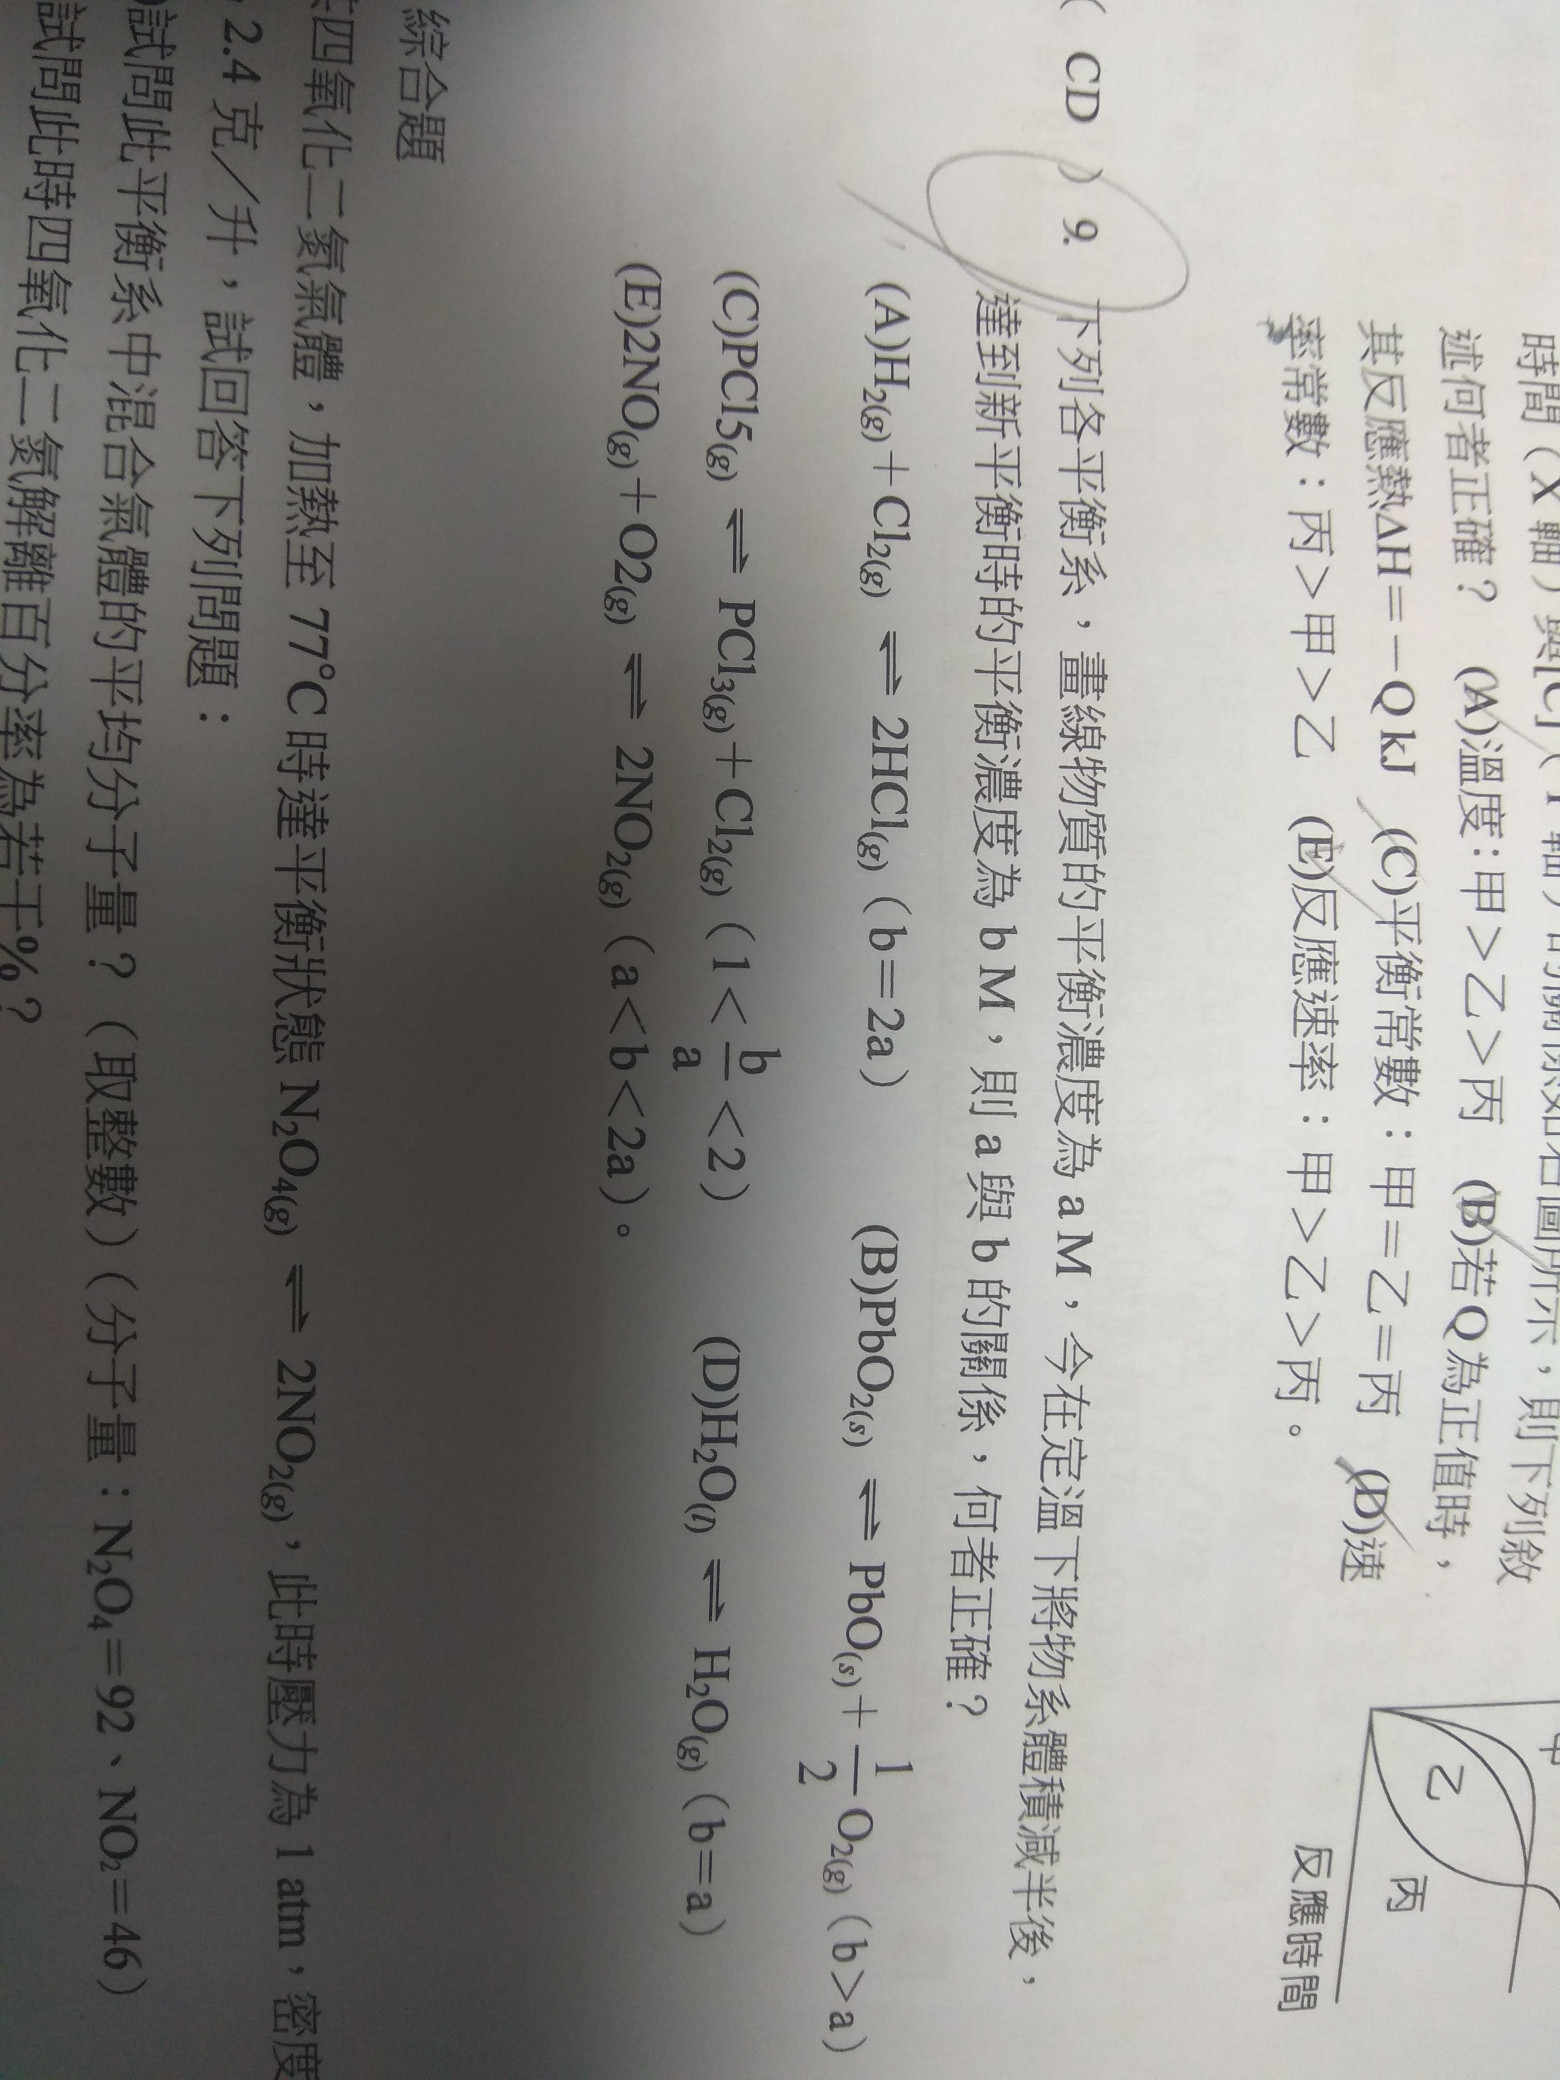 時間（X軸）與[C]（Y軸）的關係如右圖所示，則下列敘
述何者正確？ (A)溫度：甲＞乙＞丙 (B)若Q為正值時，
其反應熱ΔH＝－Q kJ (C)平衡常數：甲＝乙＝丙 (D)速
率常數：丙＞甲＞乙 (E)反應速率：甲＞乙＞丙。
乙
丙
反應時間
( CD ) 9. 下列各平衡系，畫線物質的平衡濃度為 a M，今在定溫下將物系體積減半後，
達到新平衡時的平衡濃度為 b M，則 a 與 b 的關係，何者正確？
(A)H₂(g)＋Cl₂(g) ⇌ 2HCl(g)（b＝2a） (B)PbO₂(s) ⇌ PbO(s)＋1/2 O₂(g)（b＞a）
(C)PCl5(g) ⇌ PCl₃(g)＋Cl₂(g)（1＜b/a＜2） (D)H₂O(l) ⇌ H₂O(g)（b＝a）
(E)2NO(g)＋O2(g) ⇌ 2NO₂(g)（a＜b＜2a）。
綜合題
四氧化二氮氣體，加熱至 77°C 時達平衡狀態 N₂O₄(g) ⇌ 2NO₂(g)，此時壓力為 1 atm，密度
2.4 克／升，試回答下列問題：
試問此平衡系中混合氣體的平均分子量？（取整數）（分子量：N₂O₄＝92、NO₂＝46）
試問此時四氧化二氮解離百分率為若干％？